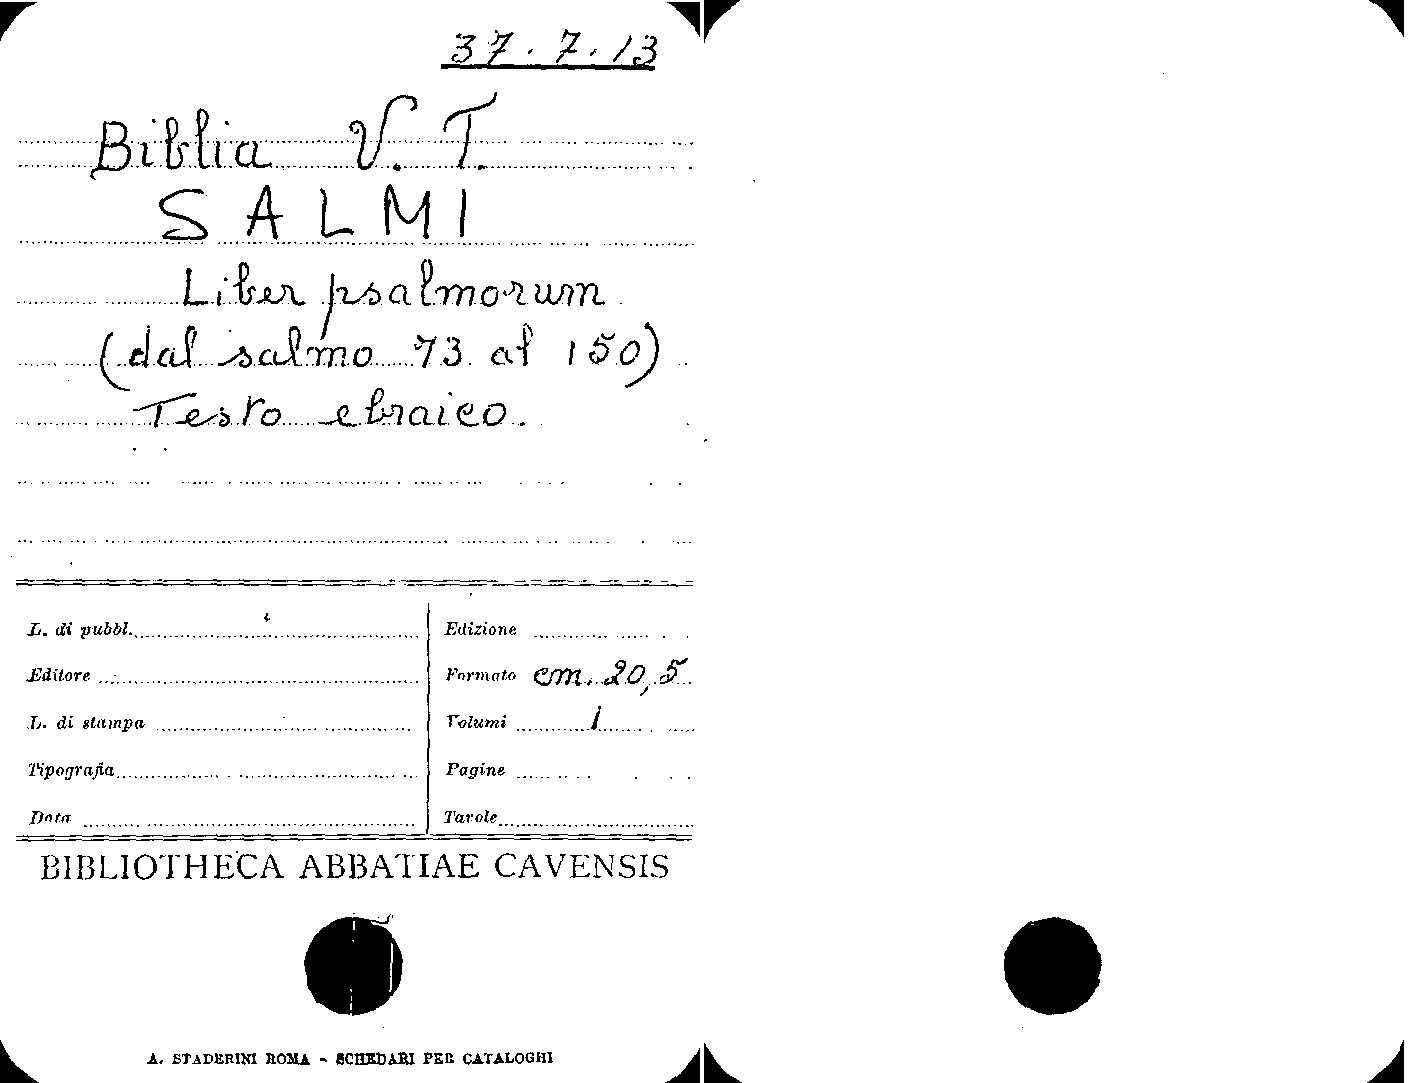 37.7.13
Biblia V.T.
SALMI
Liber psalmorum
(dal salmo 73 al 150)
Testo ebraico.
L. di pubbl.
Edizione
Editore
Formato cm. 20,5
L. di stampa
Volumi 1
Tipografia
Pagine
Data
Tavole
BIBLIOTHECA ABBATIAE CAVENSIS
A. STADERINI ROMA - SCHEDARI PER CATALOGHI